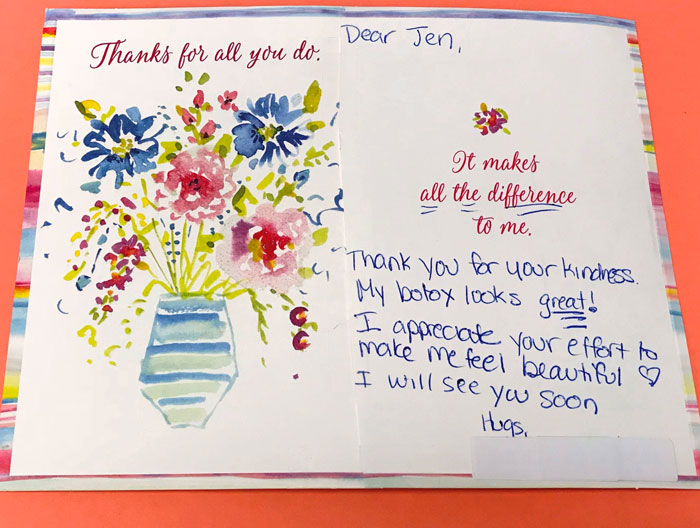 Thanks for all you do.
Dear Jen,
It makes
all the difference
to me.
Thank you for your kindness.
My botox looks great!
I appreciate your effort to
make me feel beautiful ♡
I will see you soon
Hugs,